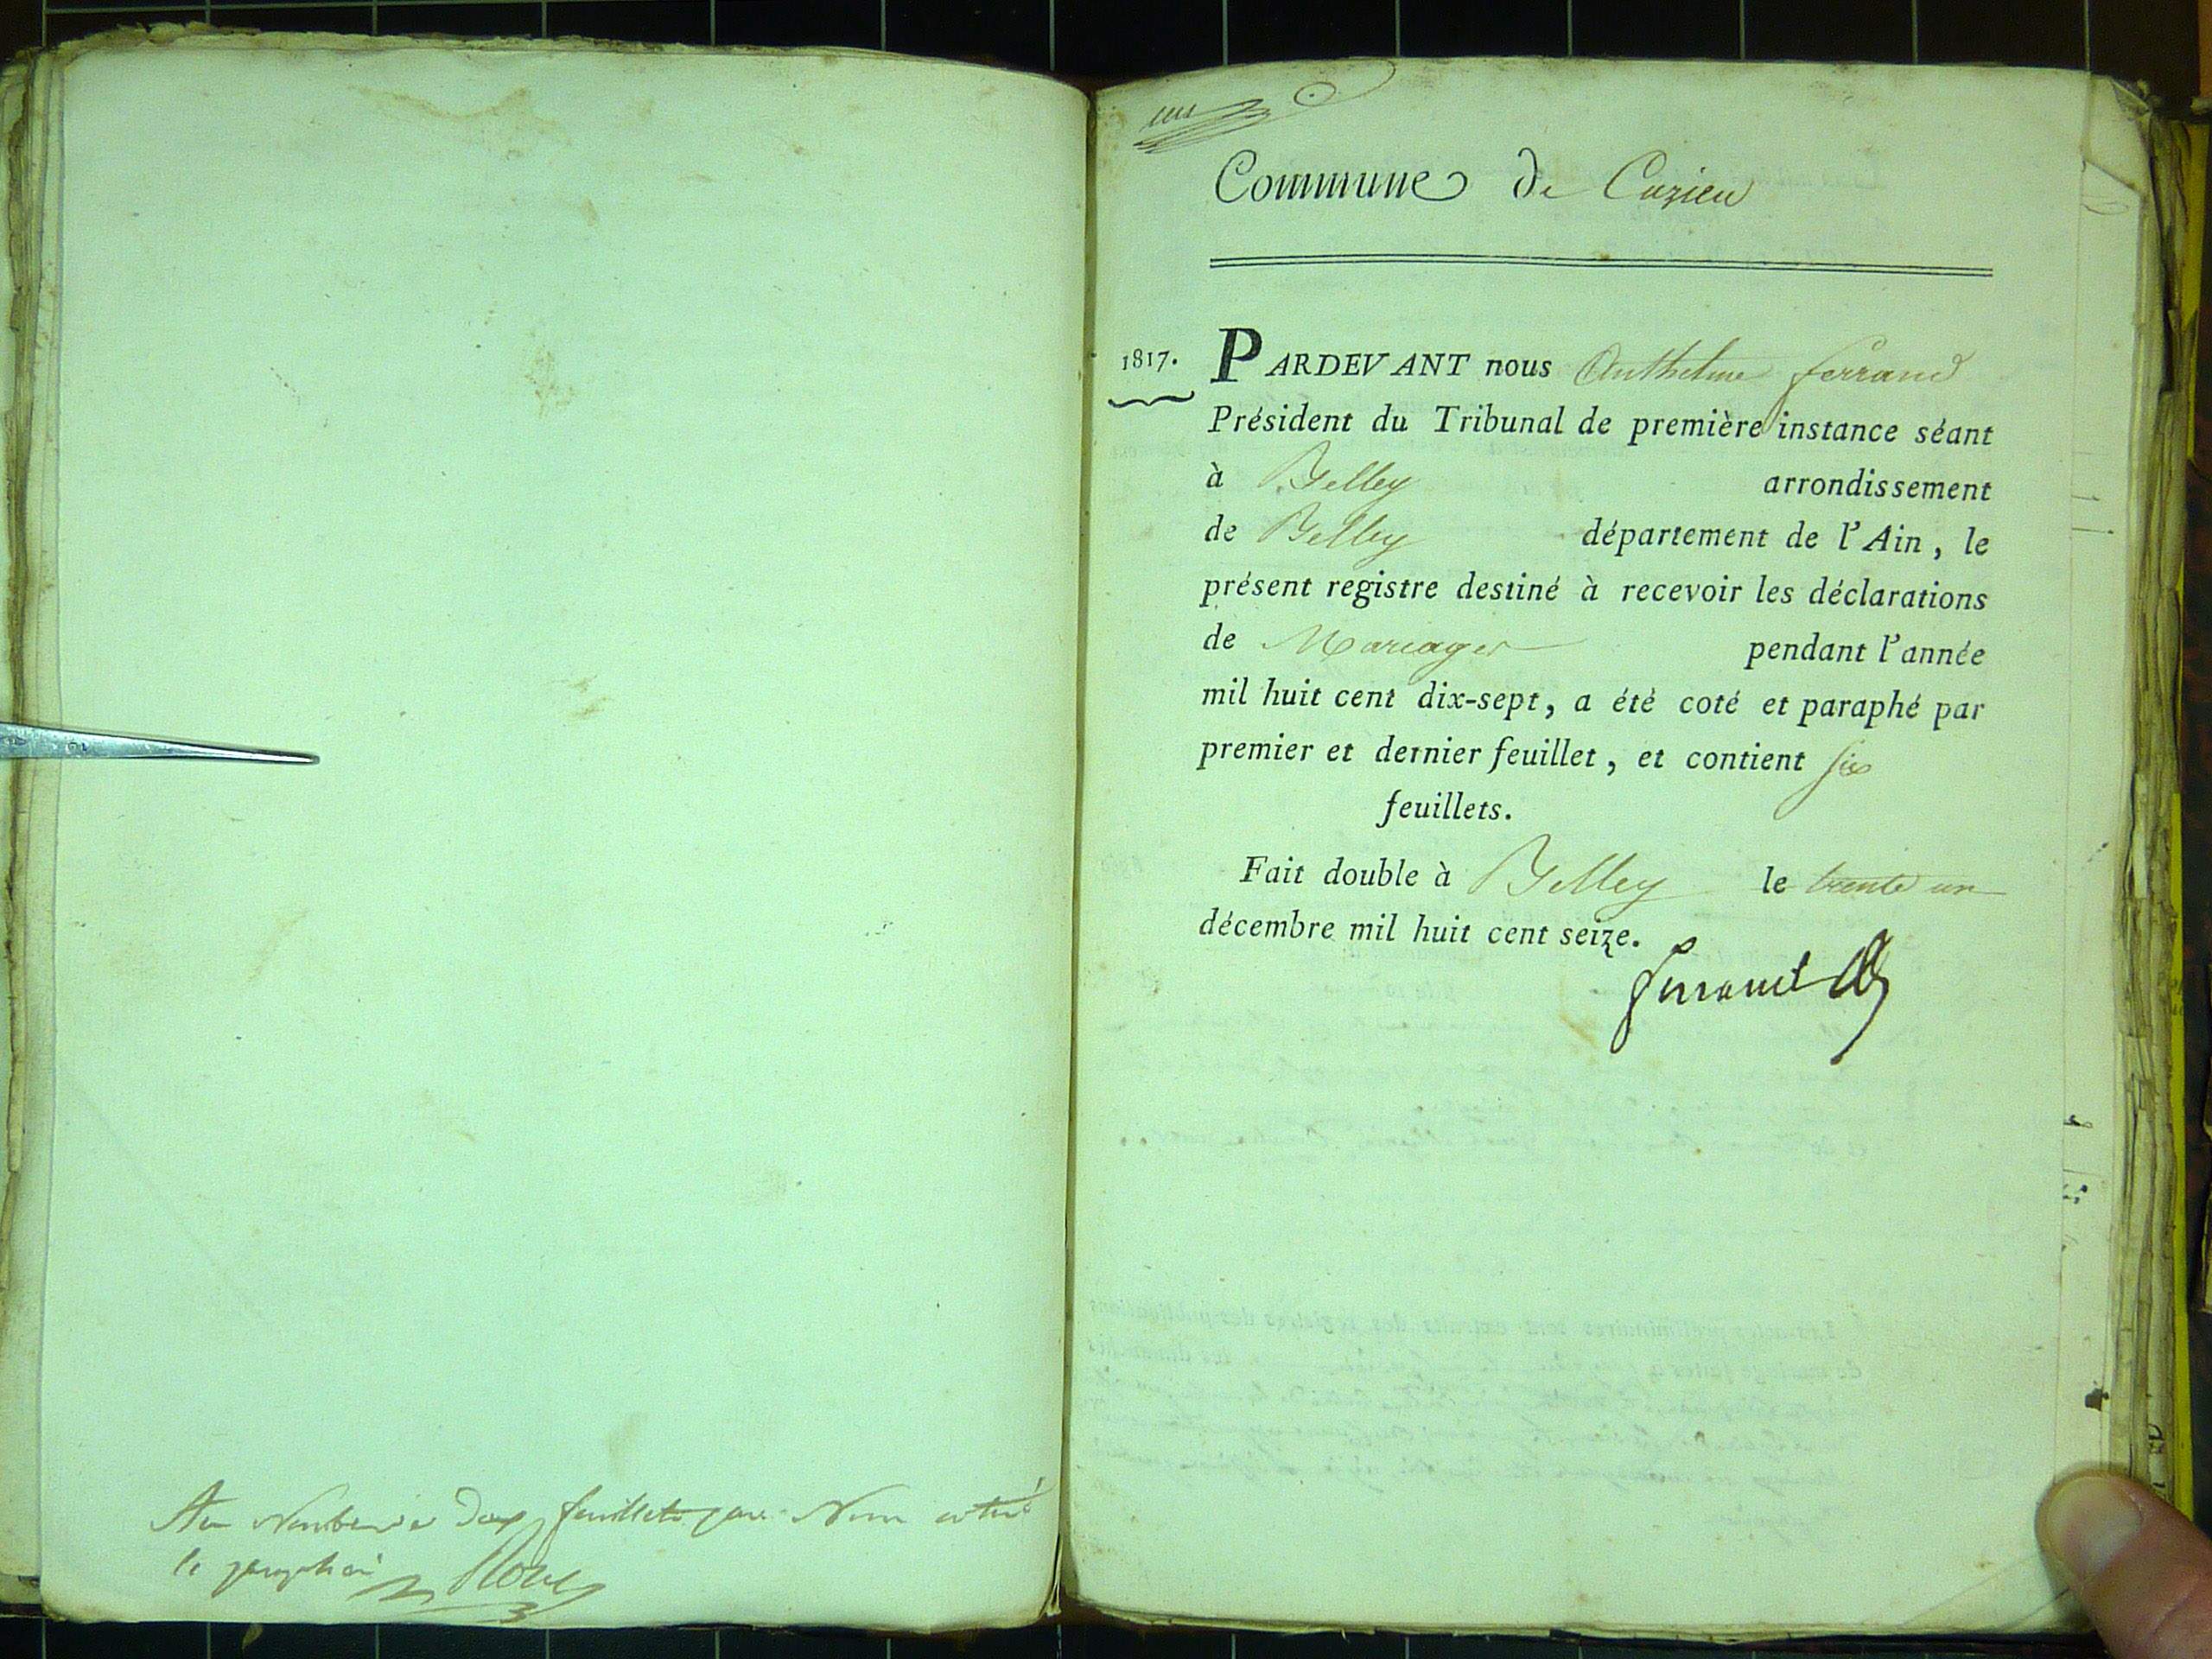 feuillets par Nous
Commune de Cuzieu
1817. PARDEVANT nous Anthelme ferrand
Président du Tribunal de première instance séant
à Belley arrondissement
de Belley département de l'Ain, le
présent registre destiné à recevoir les déclarations
de Mariages pendant l'année
mil huit cent dix-sept, a été coté et paraphé par
premier et dernier feuillet, et contient six
feuillets.
Fait double à Belley le trente un
décembre mil huit cent seize.
ferrand